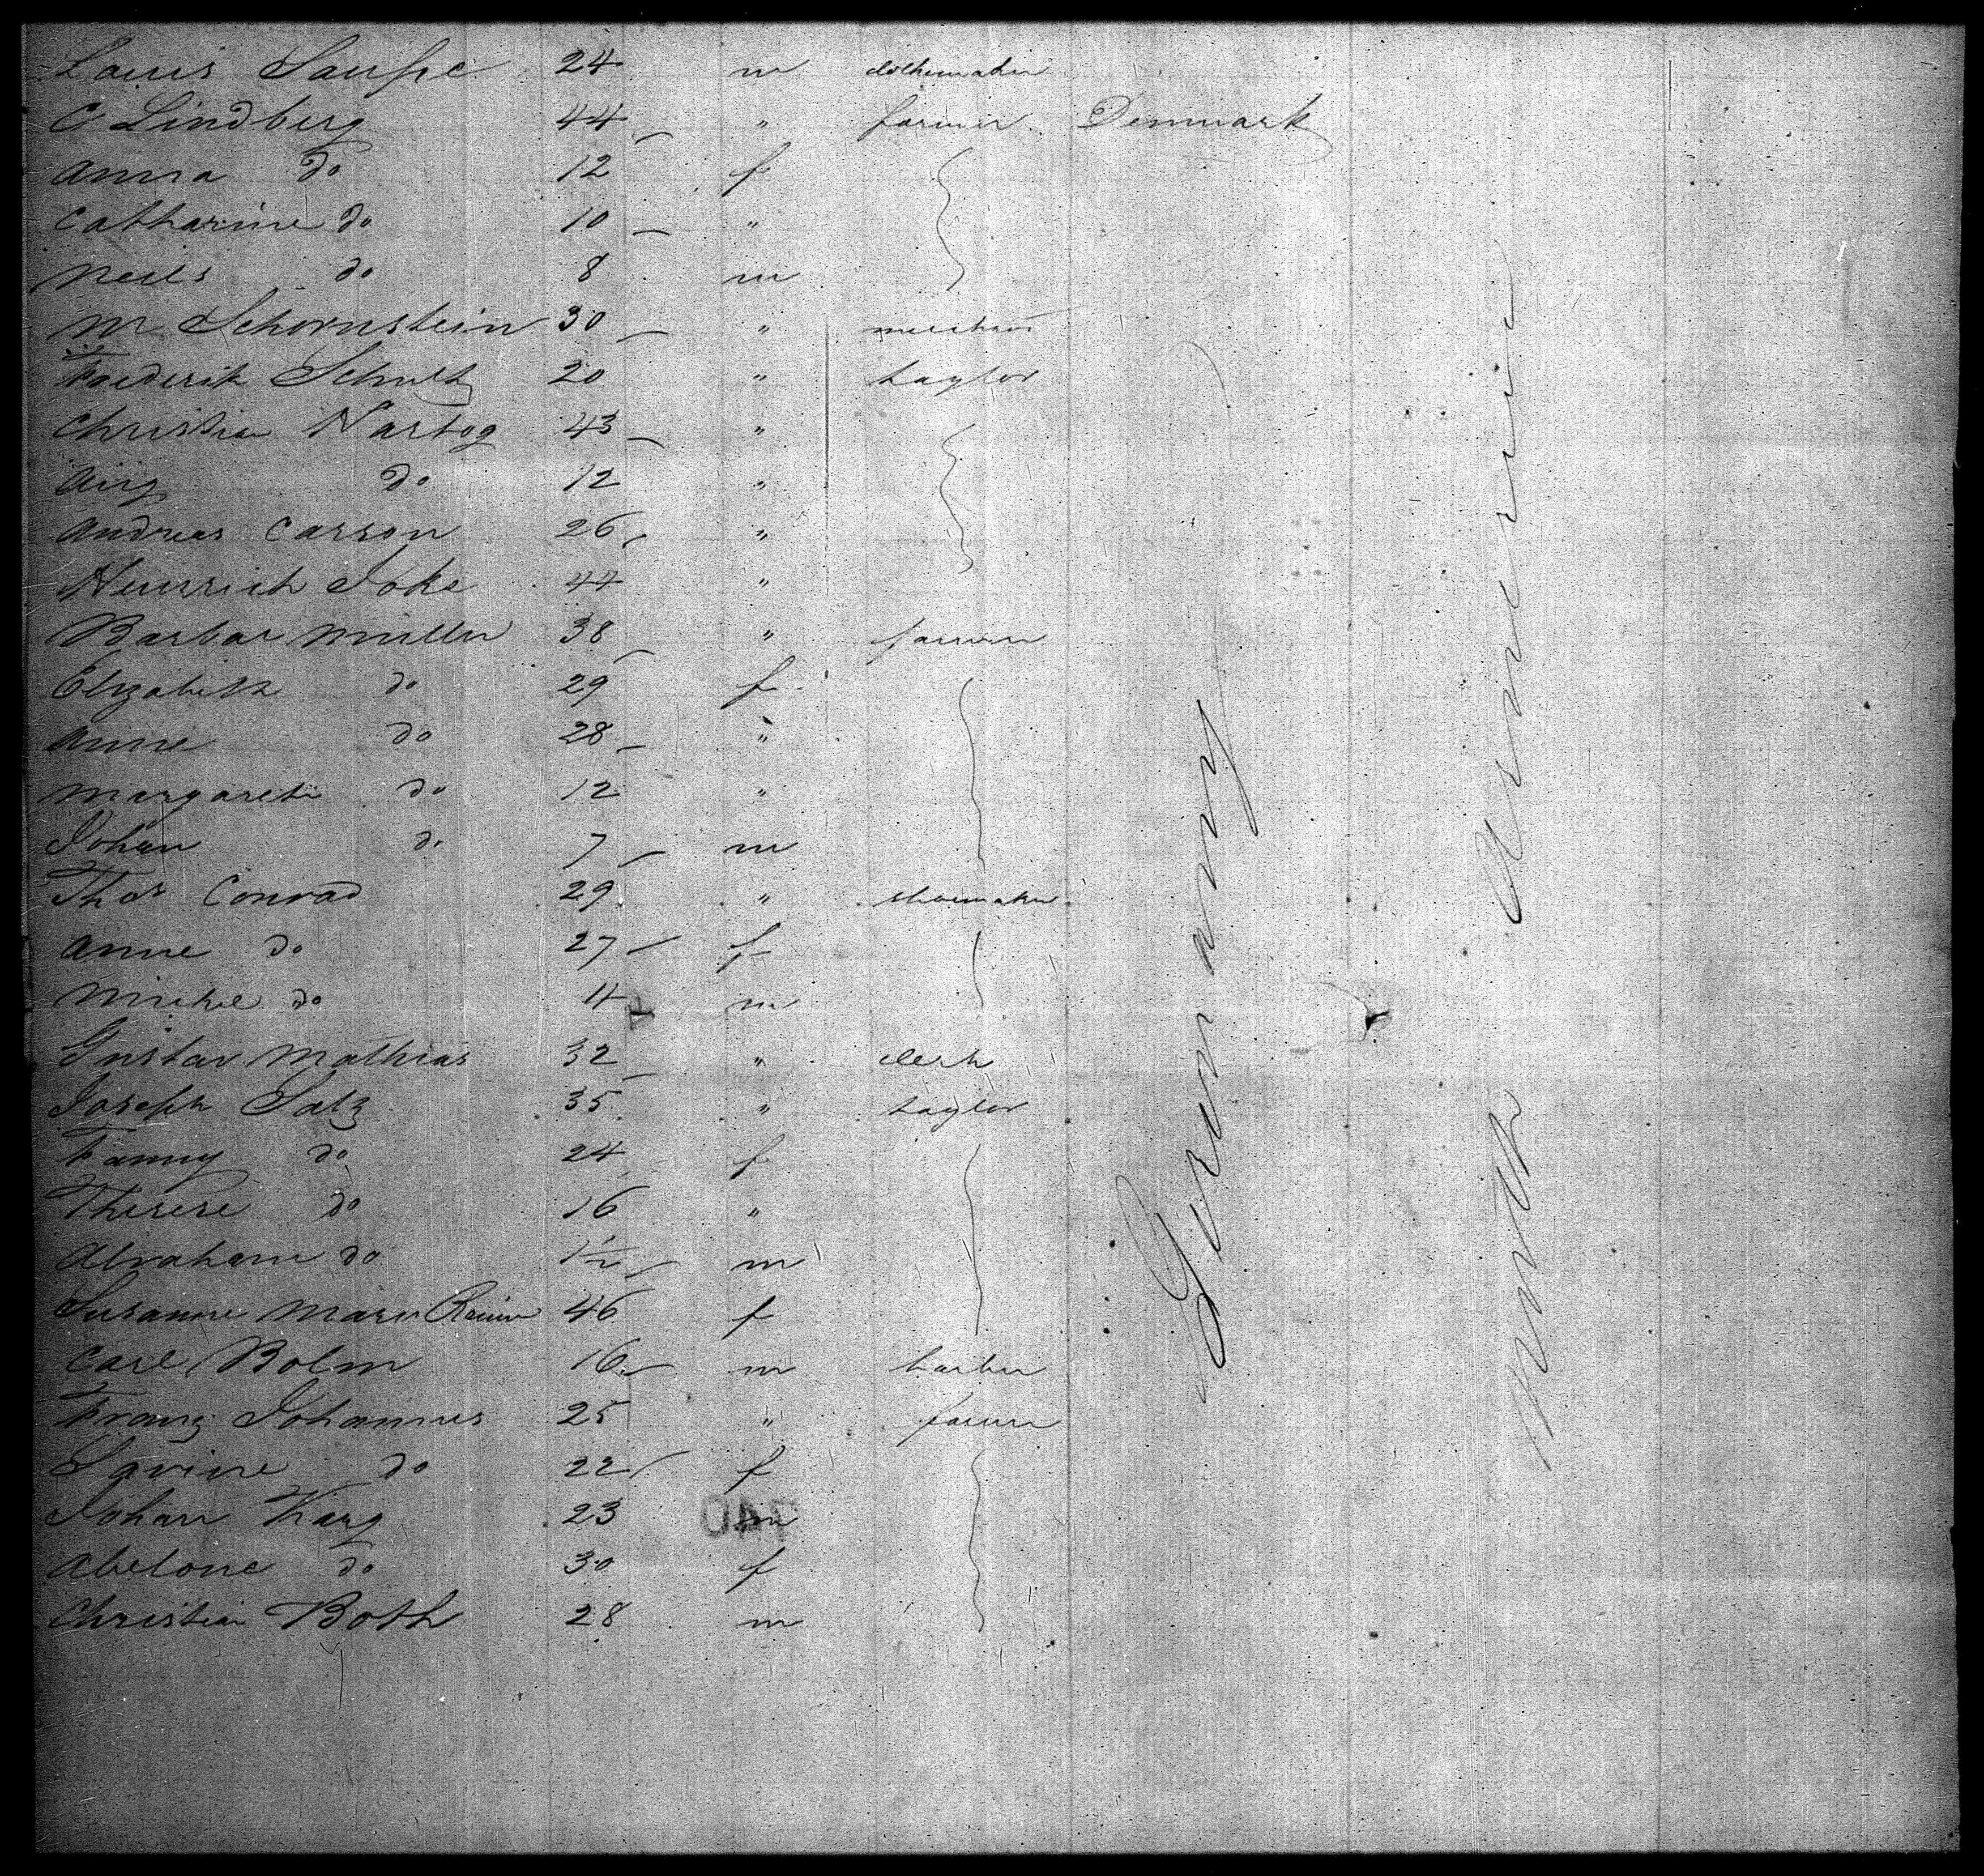 Louis Saupe 24 m clothesmaker
C Lindberg 44 " farmer Denmark
Anna do 12 f
Catharine do 10 "
Neils do 8 m
M Schornstein 30 "
Frederik Schultz 20 " taylor
Christian Hartog 43 "
Aug do 12 "
Andreas Carson 26 "
Heinrich Joke 44 "
Barbar Muller 38 " farmer
Elizabeth do 29 f
Anne do 28 "
Margareth do 12 "
Johan do 7 m
Thos Conrad 29 " shoemaker
Anne do 27 f
Michel do 4 m
Gustav Mathias 32 " clerk
Joseph Salz 35 " taylor
Fanny do 24 f
Therese do 16 "
Abraham do 1½ m
Susanne Marie 46 f
Carl Bolm 16 m barber
Franz Johannes 25 " farmer
Lavine do 22 f
Johan Karg 23 m
Abelone do 30 f
Christian Both 28 m
Germany
North America
740